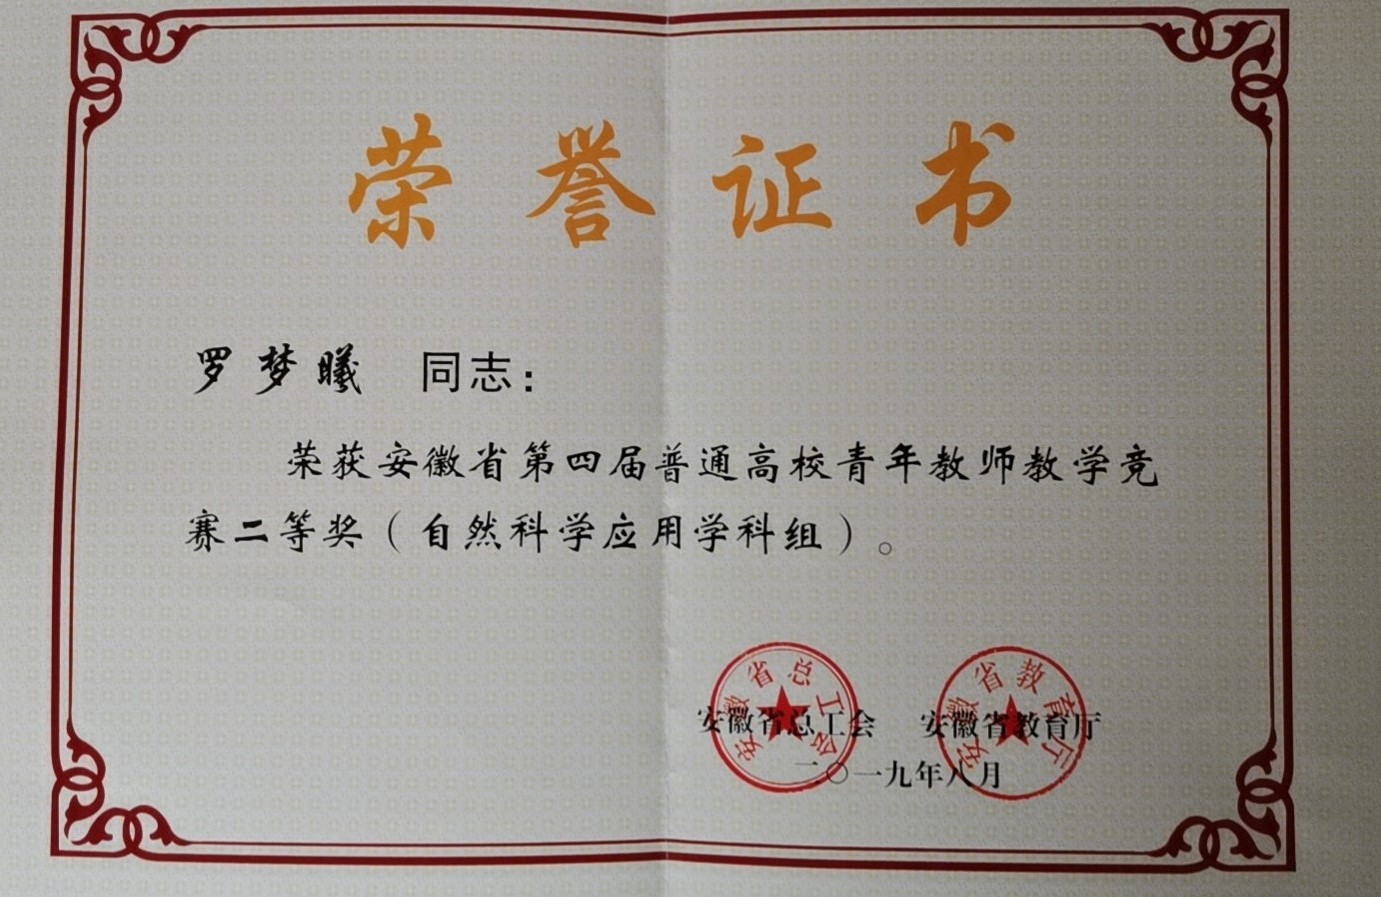 荣誉证书
罗梦曦 同志：
荣获安徽省第四届普通高校青年教师教学竞
赛二等奖（自然科学应用学科组）。
安徽省总工会 安徽省教育厅
二〇一九年八月
安徽省总工会
安徽省教育厅